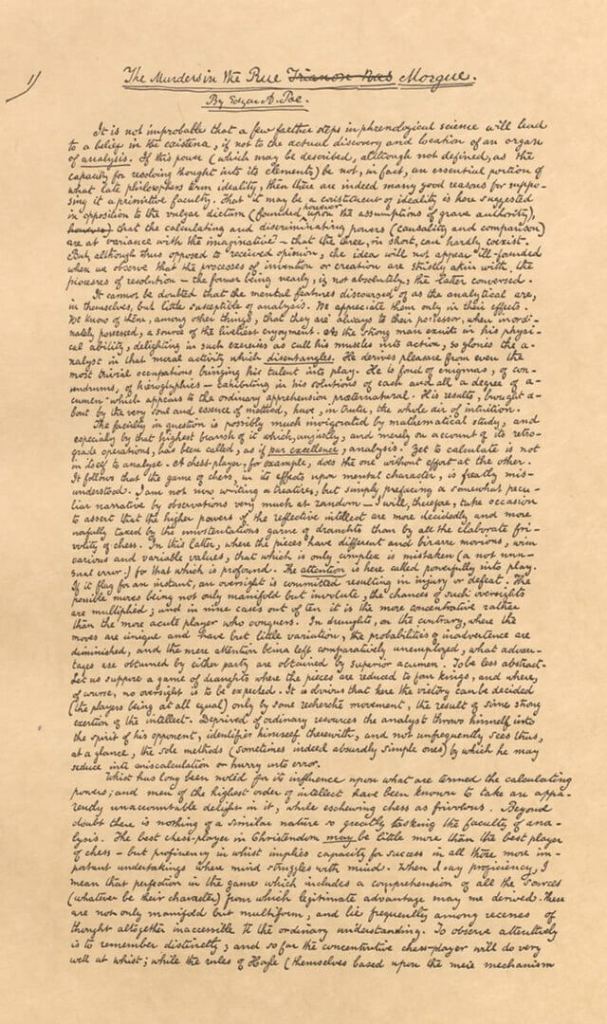 1)
The Murders in the Rue Trianon Bas Morgue.
By Edgar A. Poe.
It is not improbable that a few farther steps in phrenological science will lead
to a belief in the existence, if not to the actual discovery and location of an organ
of analysis. If this power (which may be described, although not defined, as the
capacity for resolving thought into its elements) be not, in fact, an essential portion of
what late philosophers term ideality, then there are indeed many good reasons for suppo-
sing it a primitive faculty. That it may be a constituent of ideality is here suggested
in opposition to the vulgar dictum (founded, however, upon the assumptions of grave authority),
however, that the calculating and discriminating powers (causality and comparison)
are at variance with the imaginative — that the three, in short, can hardly coexist.
But, although thus opposed to received opinion, the idea will not appear ill-founded
when we observe that the processes of invention or creation are strictly akin with the
processes of resolution — the former being nearly, if not absolutely, the latter conversed.
It cannot be doubted that the mental features discoursed of as the analytical are,
in themselves, but little susceptible of analysis. We appreciate them only in their effects.
We know of them, among other things, that they are always to their possessor, when inordi-
nately possessed, a source of the liveliest enjoyment. As the strong man exults in his physi-
cal ability, delighting in such exercises as call his muscles into action, so glories the a-
nalyst in that moral activity which disentangles. He derives pleasure from even the
most trivial occupations bringing his talent into play. He is fond of enigmas, of con-
undrums, of hieroglyphics — exhibiting in his solutions of each and all a degree of a-
cumen which appears to the ordinary apprehension præternatural. His results, brought a-
bout by the very soul and essence of method, have, in truth, the whole air of intuition.
The faculty in question is possibly much invigorated by mathematical study, and
especially by that highest branch of it which, unjustly, and merely on account of its retro-
grade operations, has been called, as if par excellence, analysis. Yet to calculate is not
in itself to analyse. A chess-player, for example, does the one without effort at the other.
It follows that the game of chess, in its effects upon mental character, is greatly mis-
understood. I am not now writing a treatise, but simply prefacing a somewhat pecu-
liar narrative by observations very much at random — I will, therefore, take occasion
to assert that the higher powers of the reflective intellect are more decidedly and more
usefully taxed by the unostentatious game of draughts than by all the elaborate fri-
volity of chess. In this latter, where the pieces have different and bizarre motions, with
various and variable values, that which is only complex is mistaken (a not unu-
sual error) for that which is profound. The attention is here called powerfully into play.
If it flag for an instant, an oversight is committed resulting in injury or defeat. The
possible moves being not only manifold but involute, the chances of such oversights
are multiplied; and in nine cases out of ten it is the more concentrative rather
than the more acute player who conquers. In draughts, on the contrary, where the
moves are unique and have but little variation, the probabilities of inadvertence are
diminished, and the mere attention being left comparatively unemployed, what advan-
tages are obtained by either party are obtained by superior acumen. To be less abstract-
Let us suppose a game of draughts where the pieces are reduced to four kings, and where,
of course, no oversight is to be expected. It is obvious that here the victory can be decided
(the players being at all equal) only by some recherché movement, the result of some strong
exertion of the intellect. Deprived of ordinary resources the analyst throws himself into
the spirit of his opponent, identifies himself therewith, and not unfrequently sees thus,
at a glance, the sole methods (sometimes indeed absurdly simple ones) by which he may
seduce into miscalculation or hurry into error.
Whist has long been noted for its influence upon what are termed the calculating
powers; and men of the highest order of intellect have been known to take an appa-
rently unaccountable delight in it, while eschewing chess as frivolous. Beyond
doubt there is nothing of a similar nature so greatly tasking the faculty of ana-
lysis. The best chess-player in Christendom may be little more than the best player
of chess — but proficiency in whist implies capacity for success in all these more im-
portant undertakings where mind struggles with mind. When I say proficiency, I
mean that perfection in the game which includes a comprehension of all the sources
(whatever be their character) from which legitimate advantage may be derived. These
are not only manifold but multiform, and lie frequently among recesses of
thought altogether inaccessible to the ordinary understanding. To observe attentively
is to remember distinctly; and so far the concentrative chess-player will do very
well at whist; while the rules of Hoyle (themselves based upon the mere mechanism